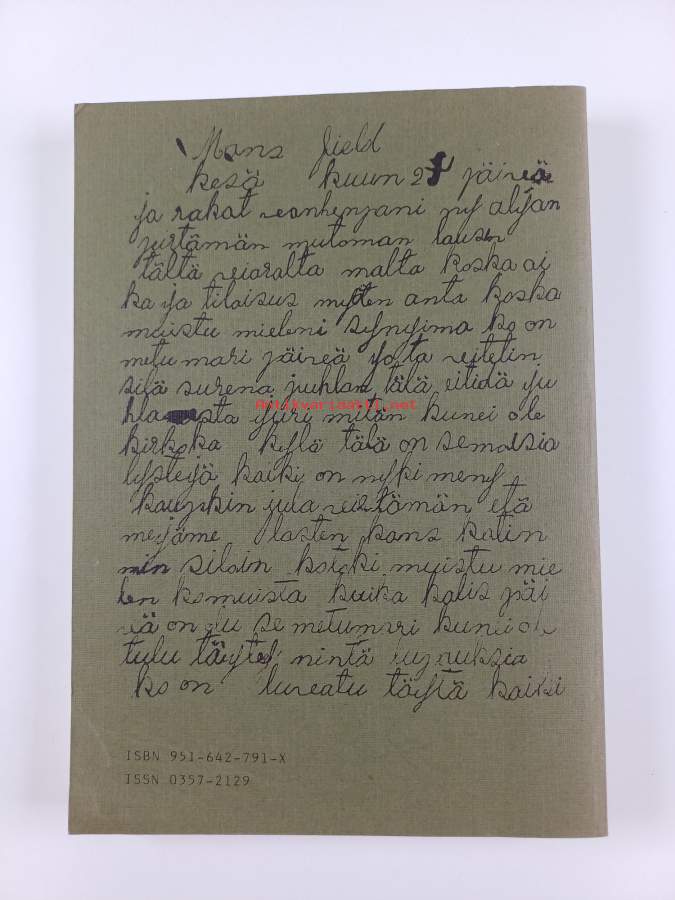 Mans field
kesä kuun 27 päivä
ja rakat vanhenpani nyt aljan
pirtämän mutoman lausen
tältä viaralta malta koska ai
ka ja tilaisus myten anta koska
muistu mieleni synyjima ko on
metu mari päivä jota vietetin
sitä surena juhlan tälä eitidä ju
hla sta ijuri mitän kunei ole
kirkoka kylä tälä on semosia
lysteijä kaiki on nyki meny
kaupkin jula vietämän etä
mejäme lasten kans katin
min siloin kotoki muistu mie
len komuista kuika kalis päi
vä on olu se metumari kunei ole
tulu täyte nintä lupauksia
ko on luvatu täytä kaiki
Antikvariaatti.net
ISBN 951-642-791-X
ISSN 0357-2129